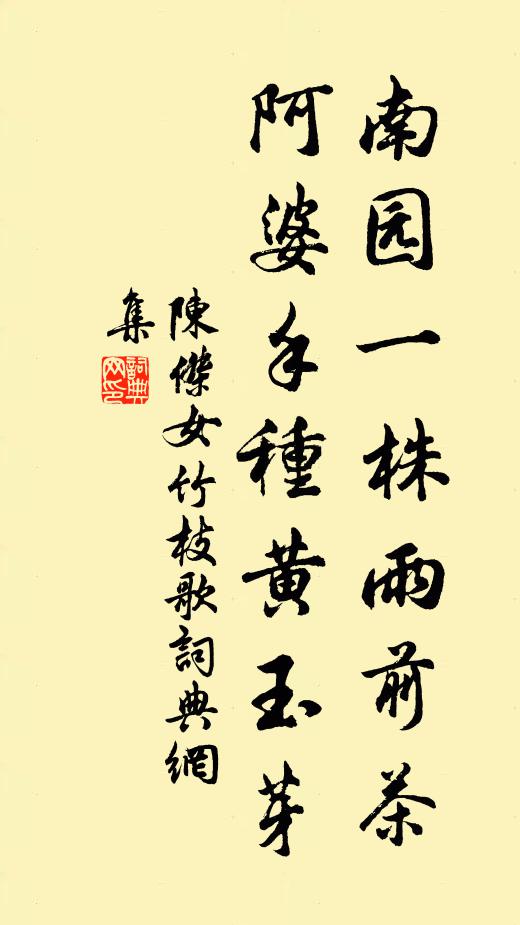 南园一株雨前茶
阿婆手種黄玉芽
陳傑女竹枝歌詞典網
集
詞典
网印